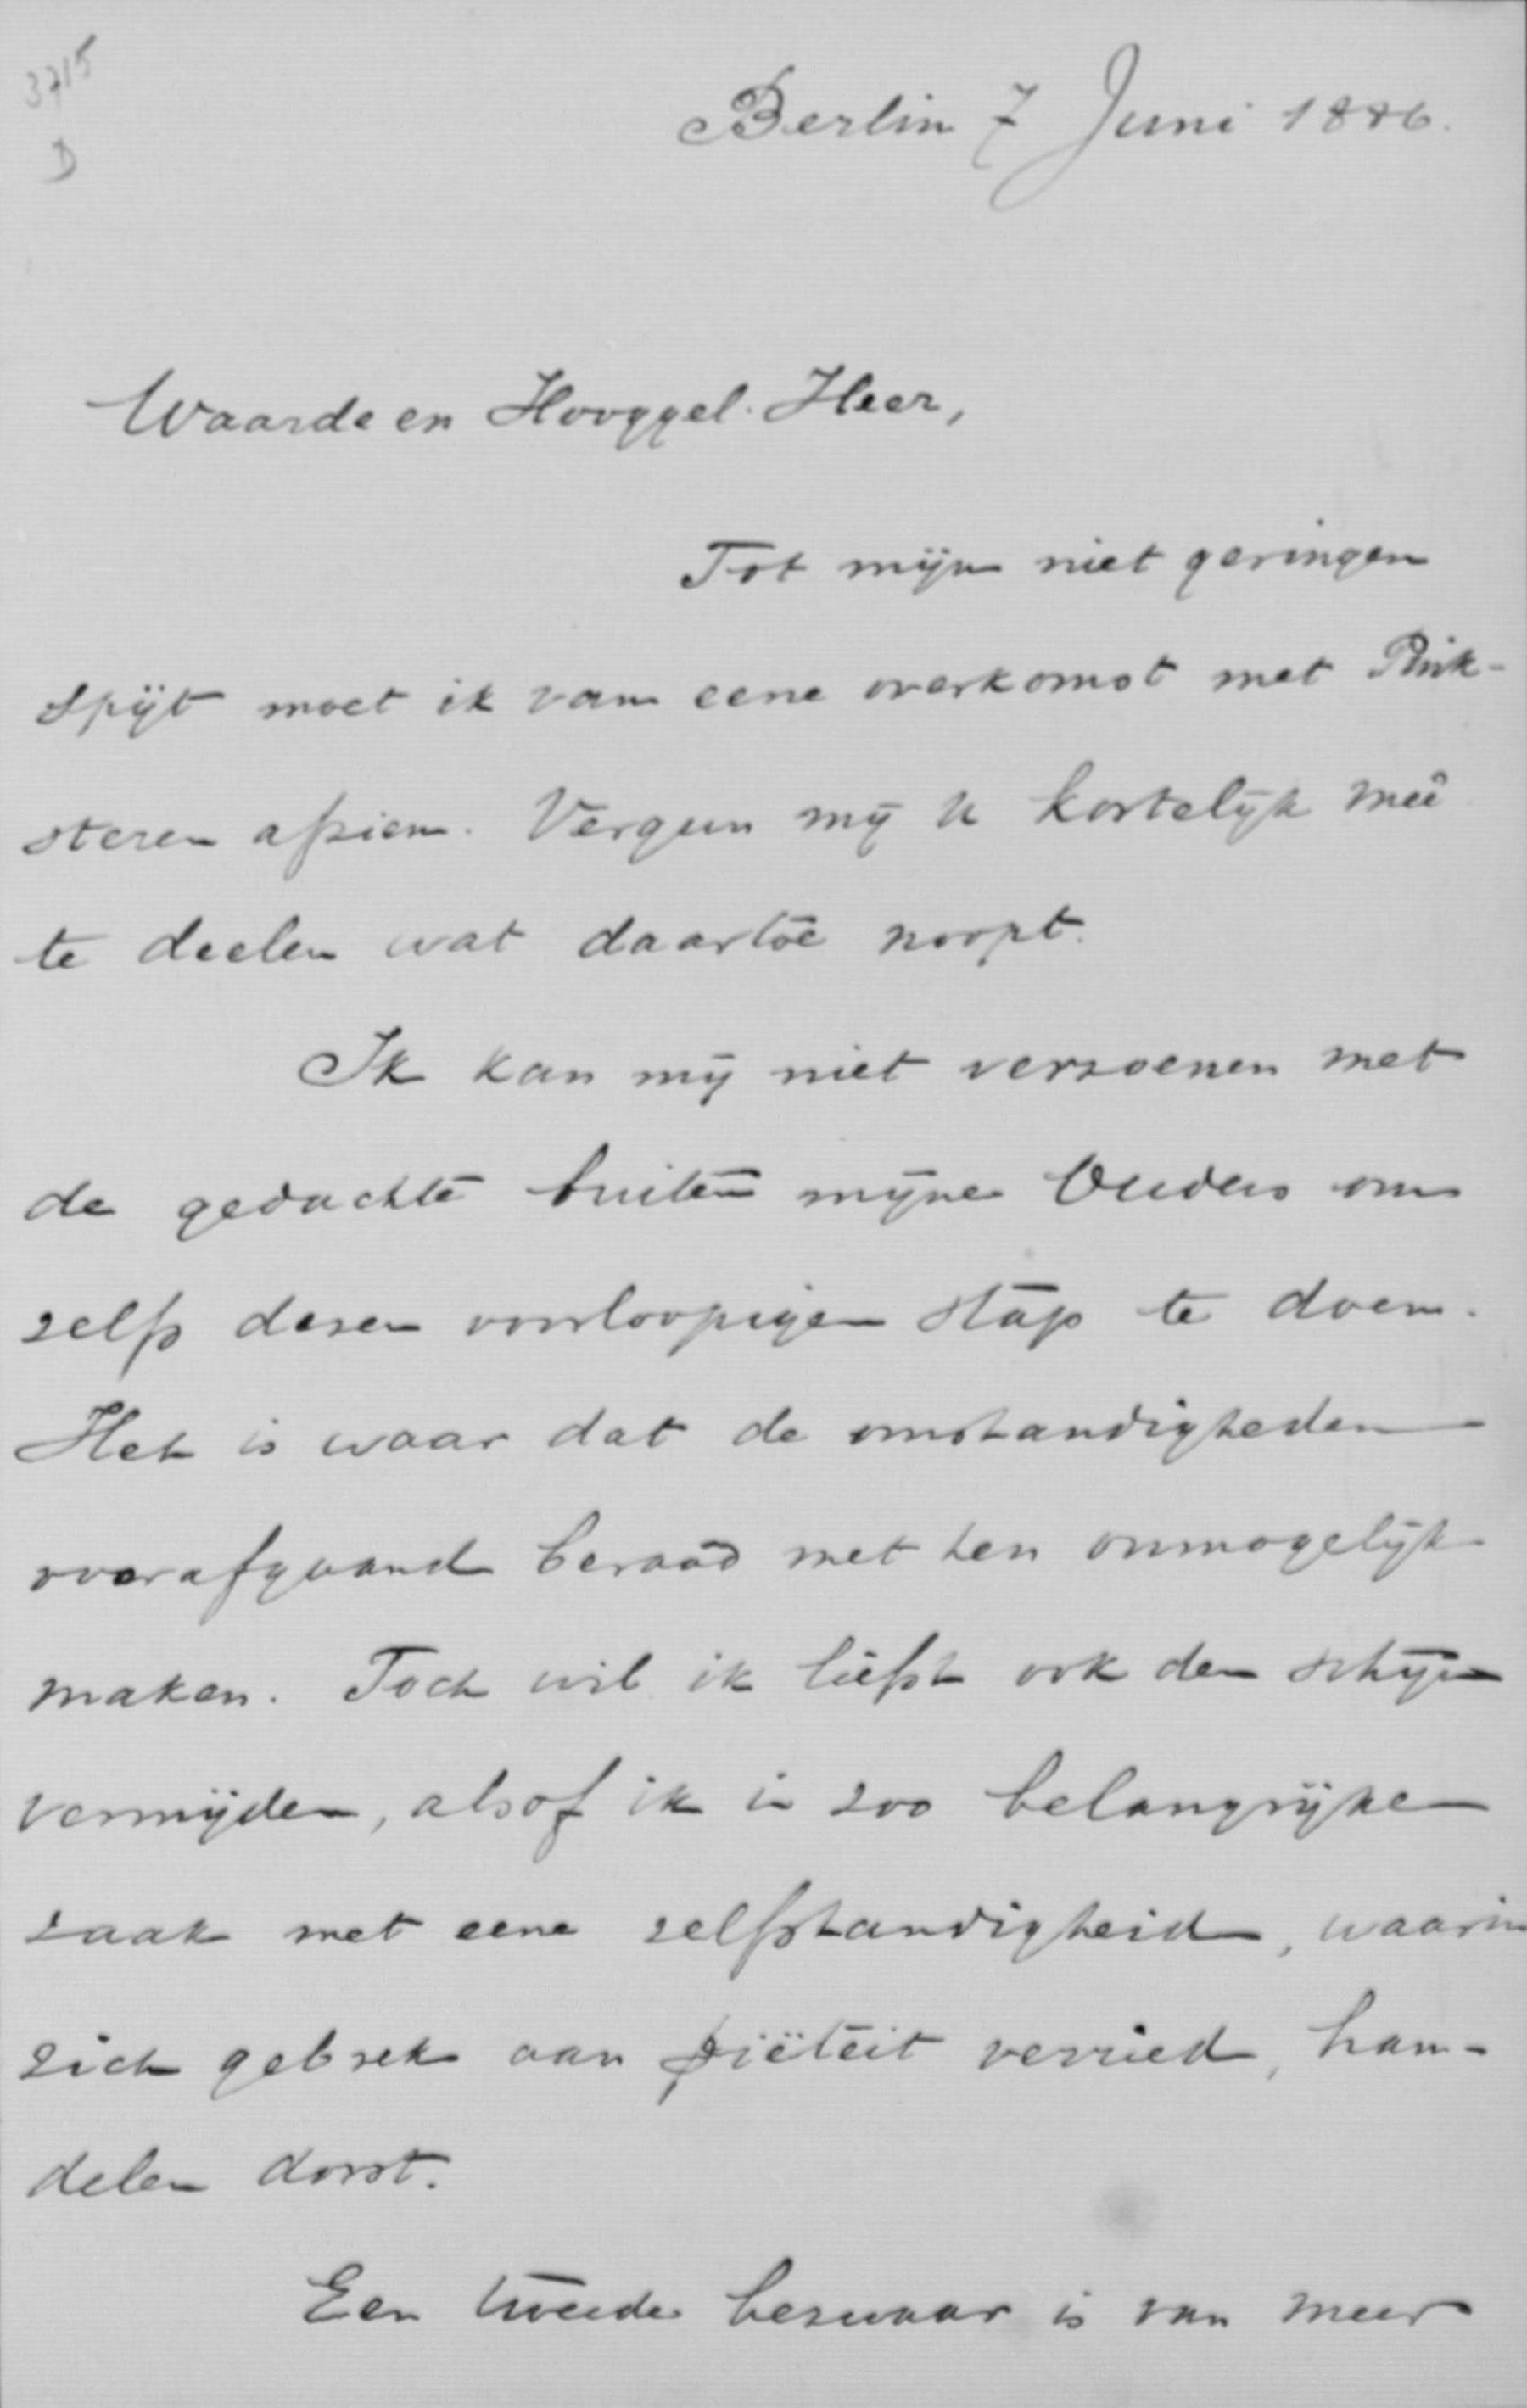 3715
D
Berlin 7 Juni 1886.
Waarde en Hooggel. Heer,
Tot mijn niet geringen
spijt moet ik van eene overkomst met Pink-
steren afzien. Vergun mij U kortelijk meê
te deelen wat daartoe noopt.
Ik kan mij niet verzoenen met
de gedachte buiten mijne Ouders om
zelfs dezen voorloopigen stap te doen.
Het is waar dat de omstandigheden
voorafgaand beraad met hen onmogelijk
maken. Toch wil ik liefst ook den schijn
vermijden, alsof ik in zoo belangrijke
zaak met eene zelfstandigheid, waarin
zich gebrek aan piëteit verried, han-
delen dorst.
Een tweede bezwaar is van meer